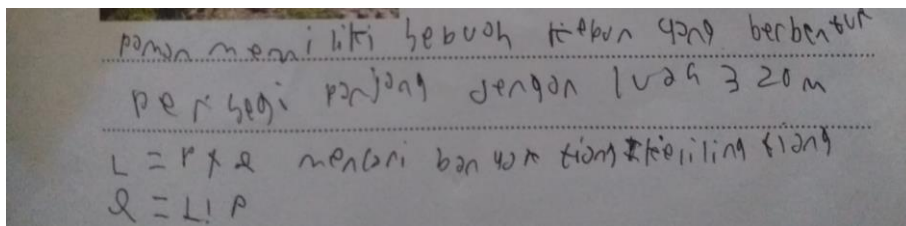 paman memiliki sebuah kebun yang berbentuk
persegi panjang dengan luas 320 m
L = P x l mencari banyak tiang keliling tiang
l = L : P